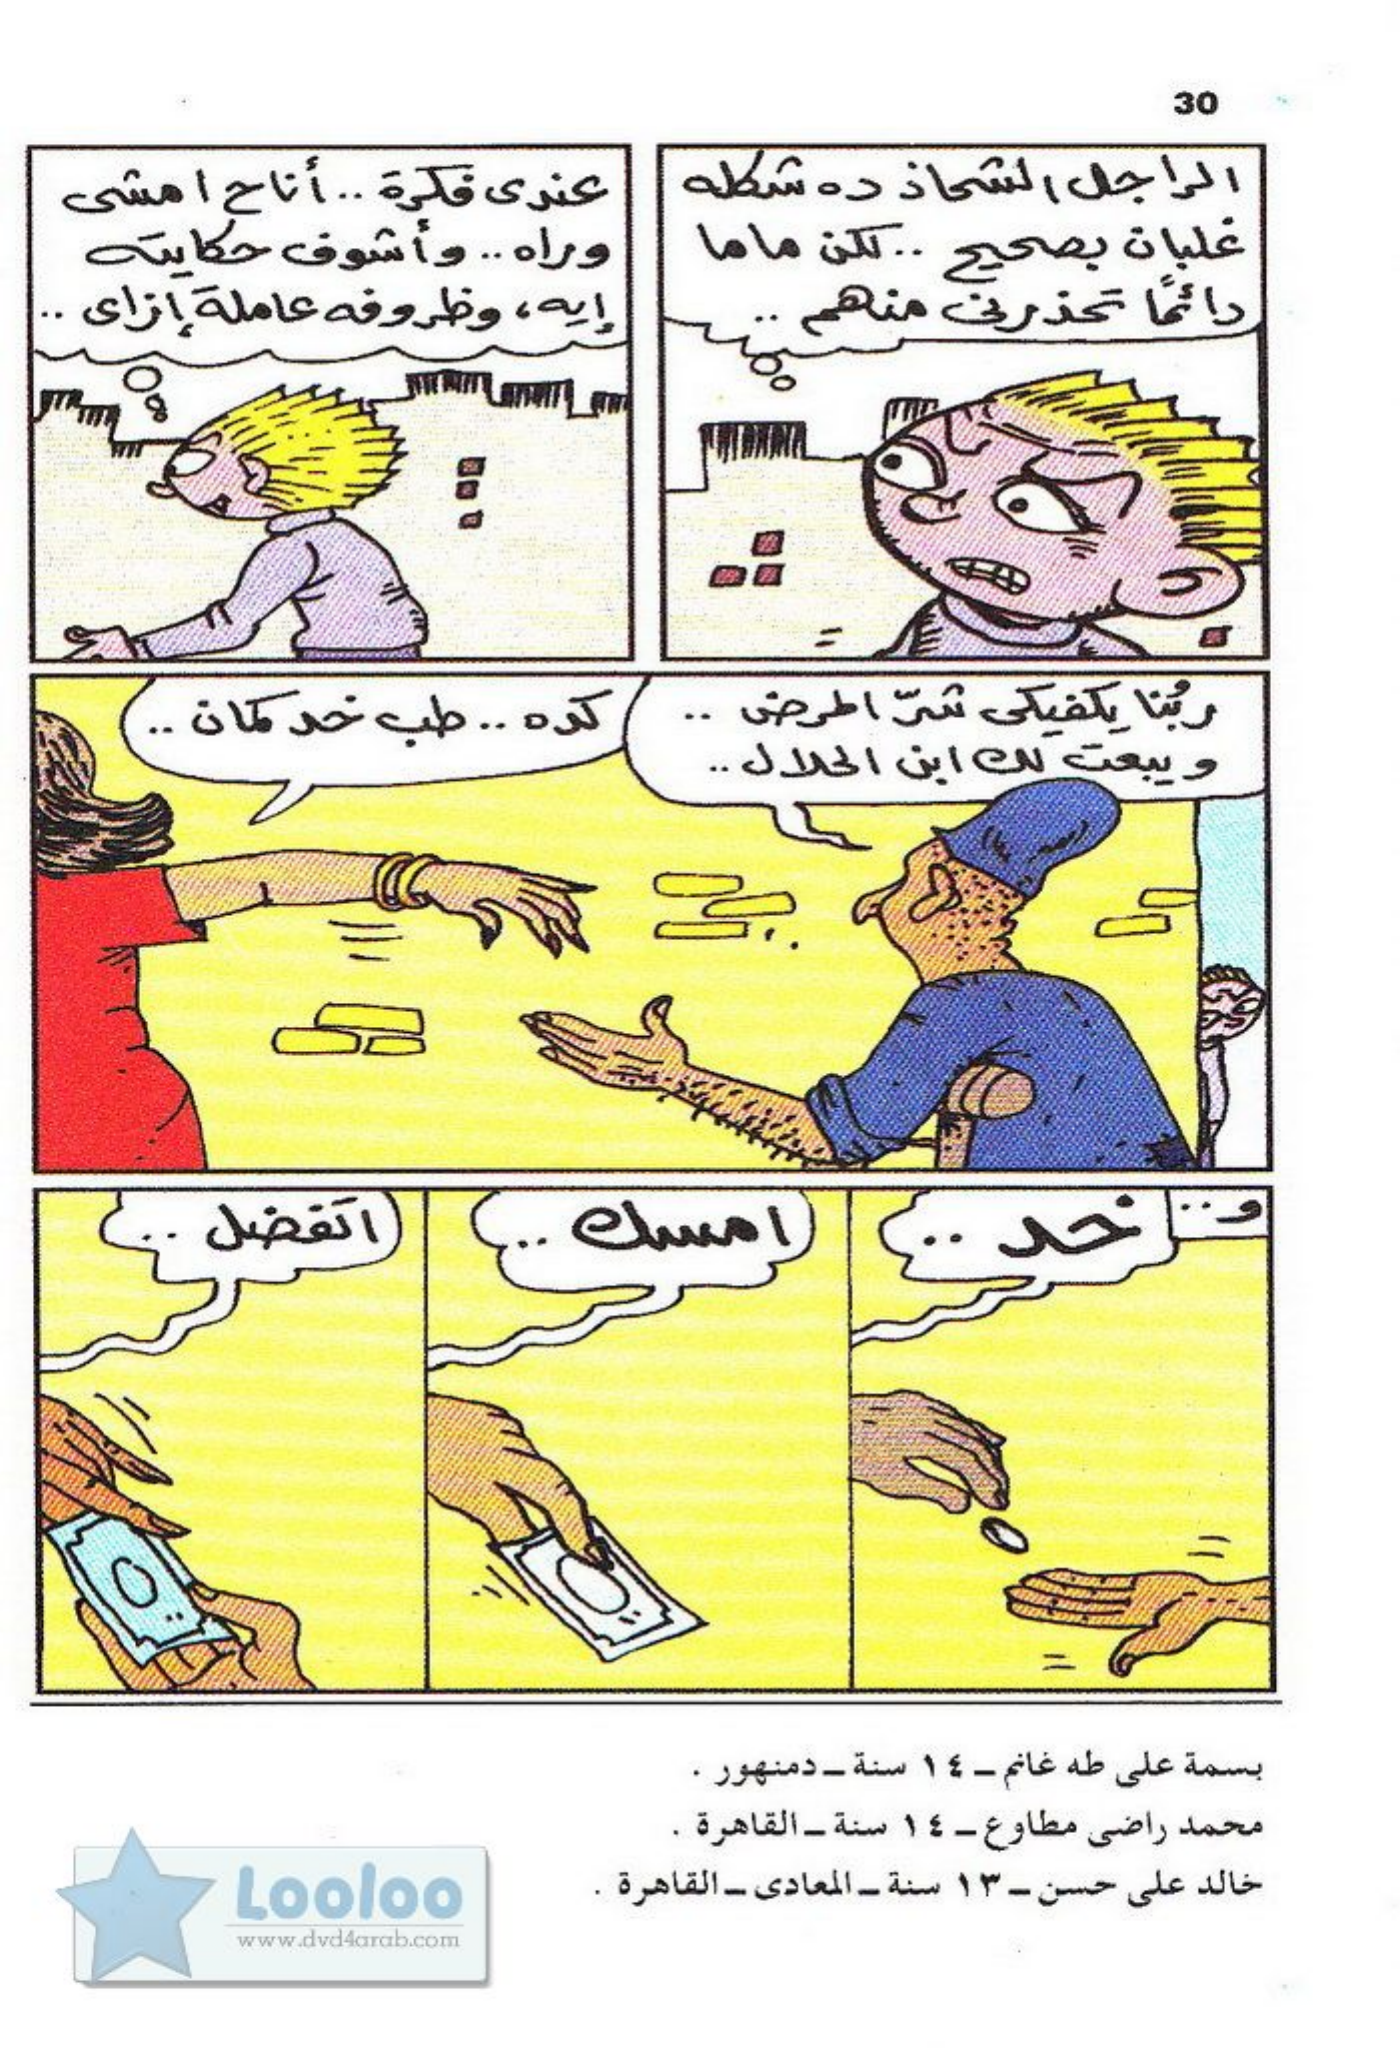 30
الراجل الشحاذ ده شكله
غلبان بصحيح .. لكن ماما
دائمًا تحذرنى منهم ..
عندى فكرة .. أنا ح امشى
وراه .. وأشوف حكايته
إيه، وظروفه عاملة إزاى ..
ربُّنا يكفيكى شرّ المرض ..
ويبعت لك ابن الحلال ..
كده .. طب خد كمان ..
و ..
خد ..
امسك ..
اتفضل ..
بسمة على طه غانم ــ ١٤ سنة ــ دمنهور .
محمد راضى مطاوع ــ ١٤ سنة ــ القاهرة .
خالد على حسن ــ ١٣ سنة ــ المعادى ــ القاهرة .
Looloo
www.dvd4arab.com